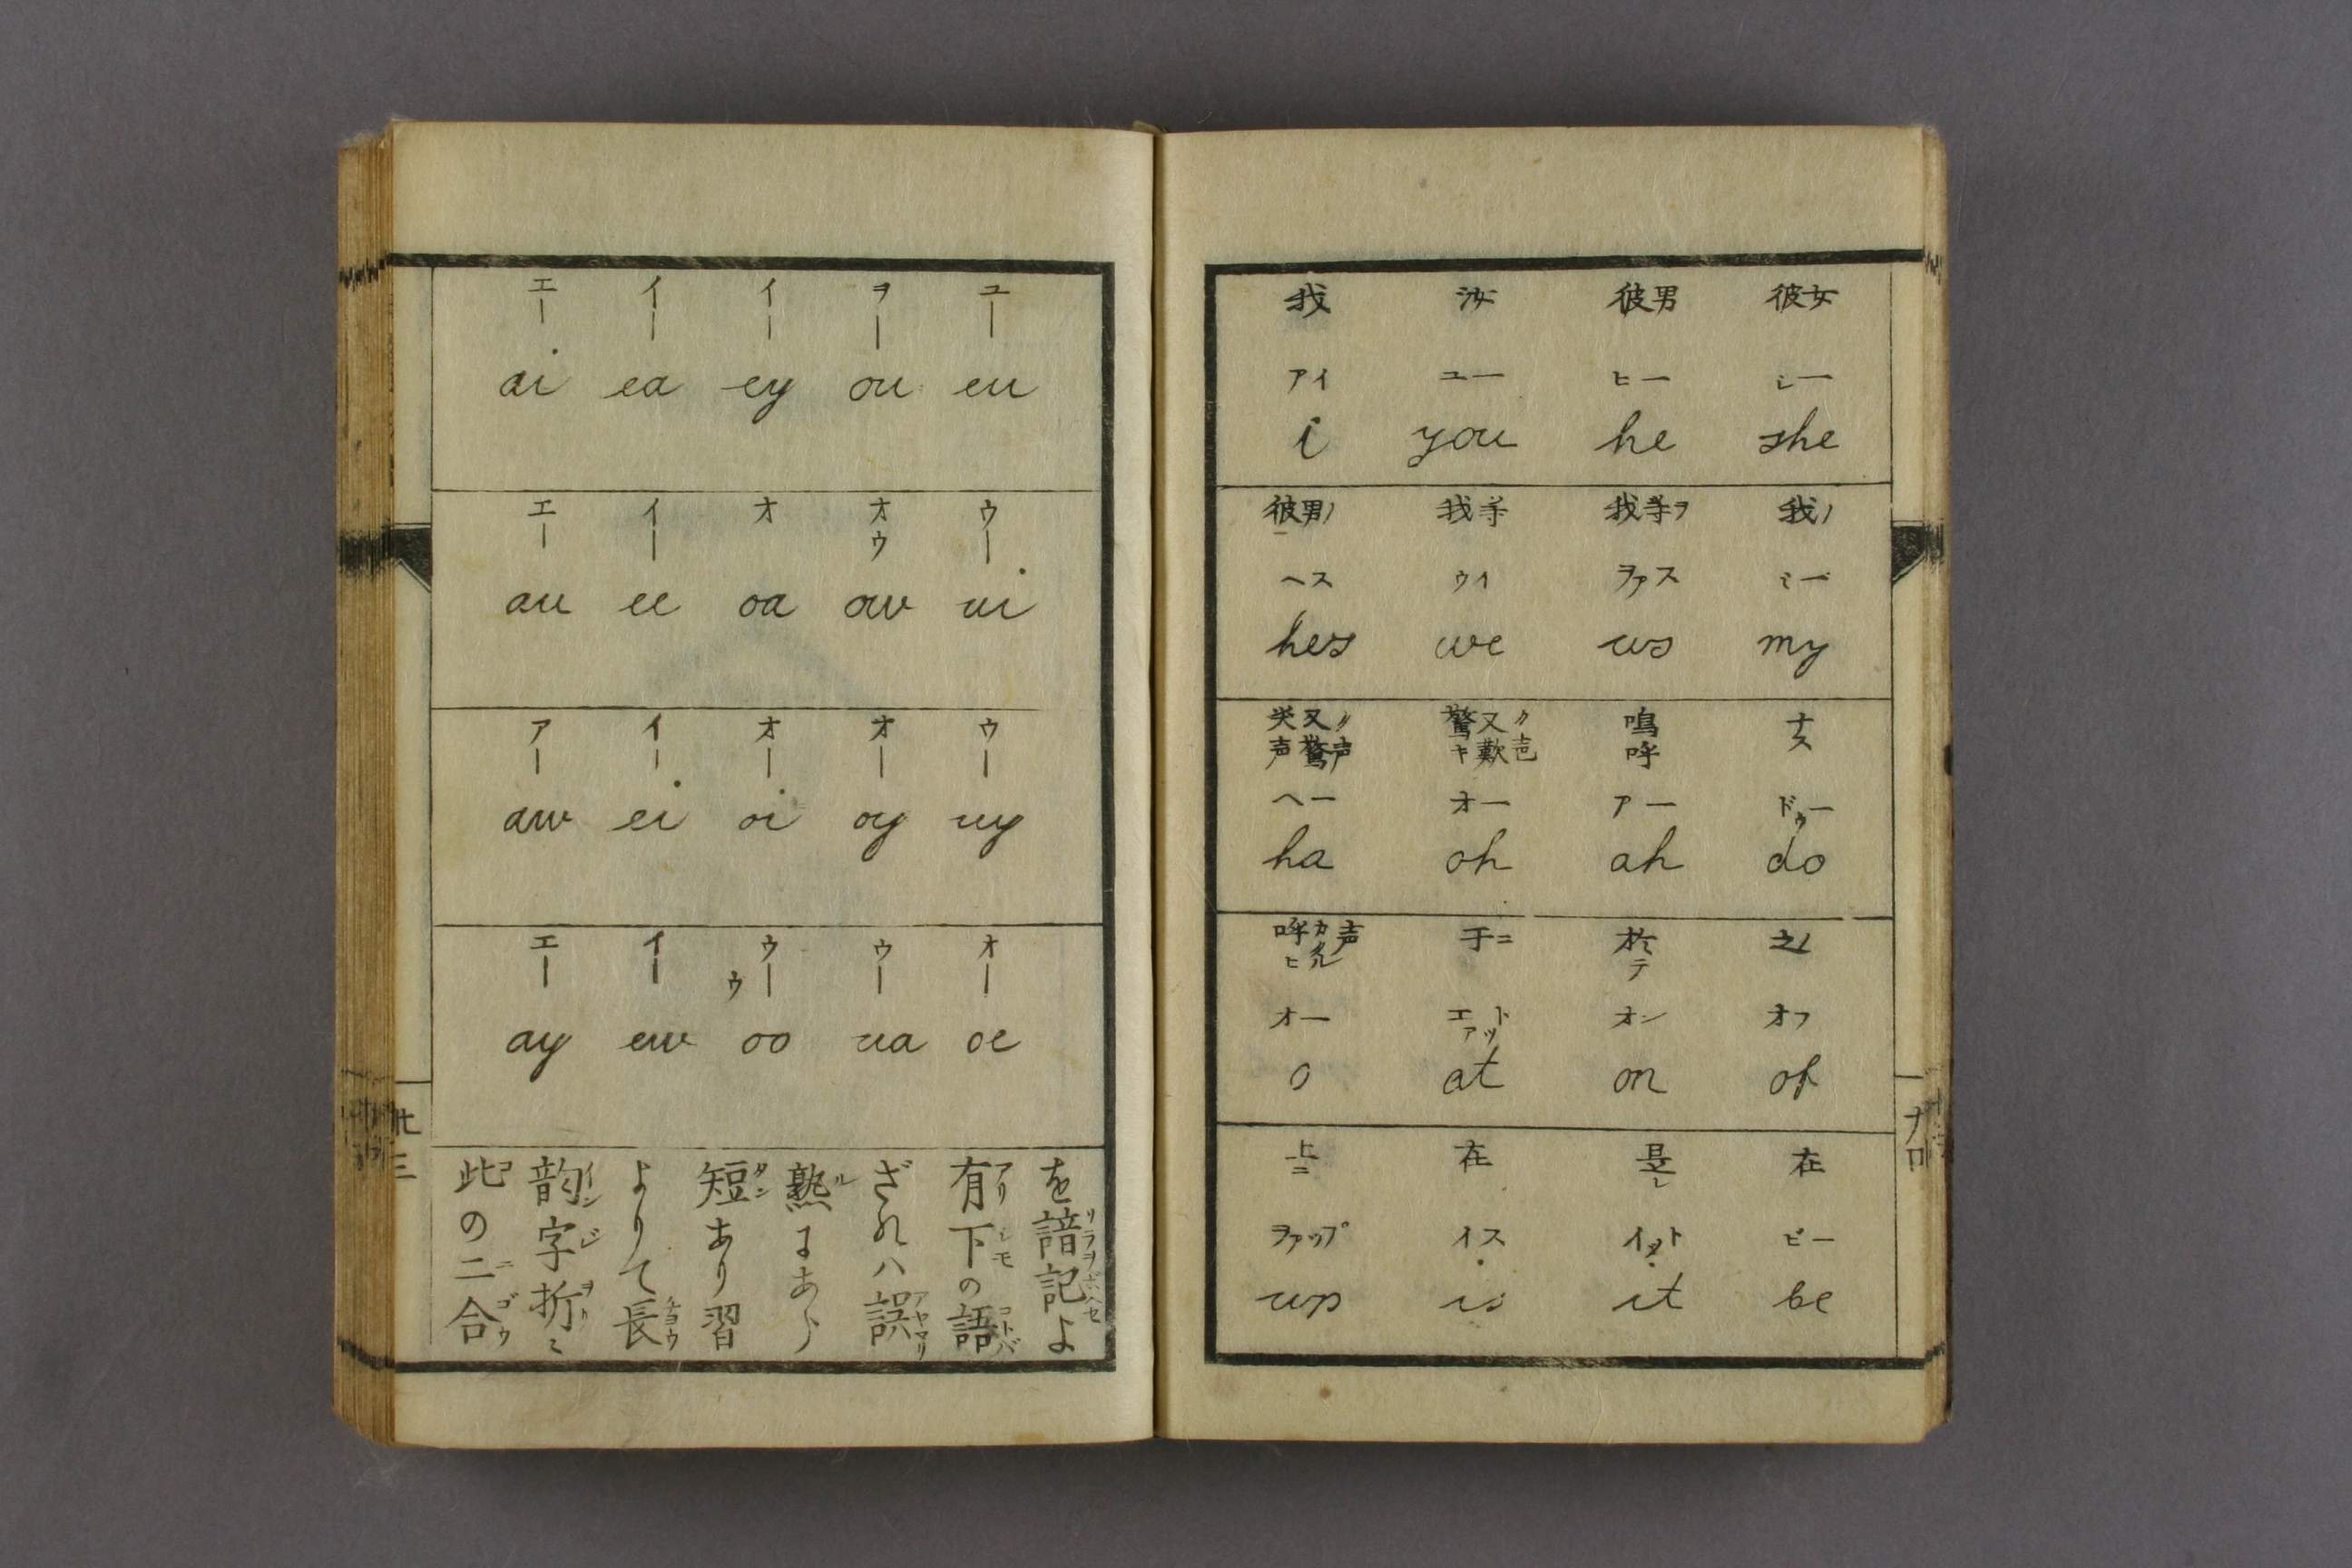 我 汝 彼男 彼女
アイ ユー ヒー シー
i you he she
彼男ノ 我等 我等ヲ 我ノ
ヘス ウイ ヲアス ミー
hes we us my
笑又ノ 驚又ノ 嗚 ナス
声驚声 キ歎声 呼
ヘー オー アー ドウー
ha oh ah do
呼ヒカクル声 于ニ 於ミテ 之ノ
オー エアット オン オフ
o at on of
上ニ 在 是レ 在
ヲアップ イス イット ビー
up is it be
エー イー イー ヲー ユー
ai ea ey ou eu
エー イー オ オウ ウー
au ee oa ow ui
アー イー オー オー ウー
aw ei oi oy uy
エー イー ウー ウ ウー オー
ay ew oo ua oe
此の二合
韵字折ミ
よりて長
短あり習
熟にあら
ざれハ誤
有下の語
を諳記よ
廿三